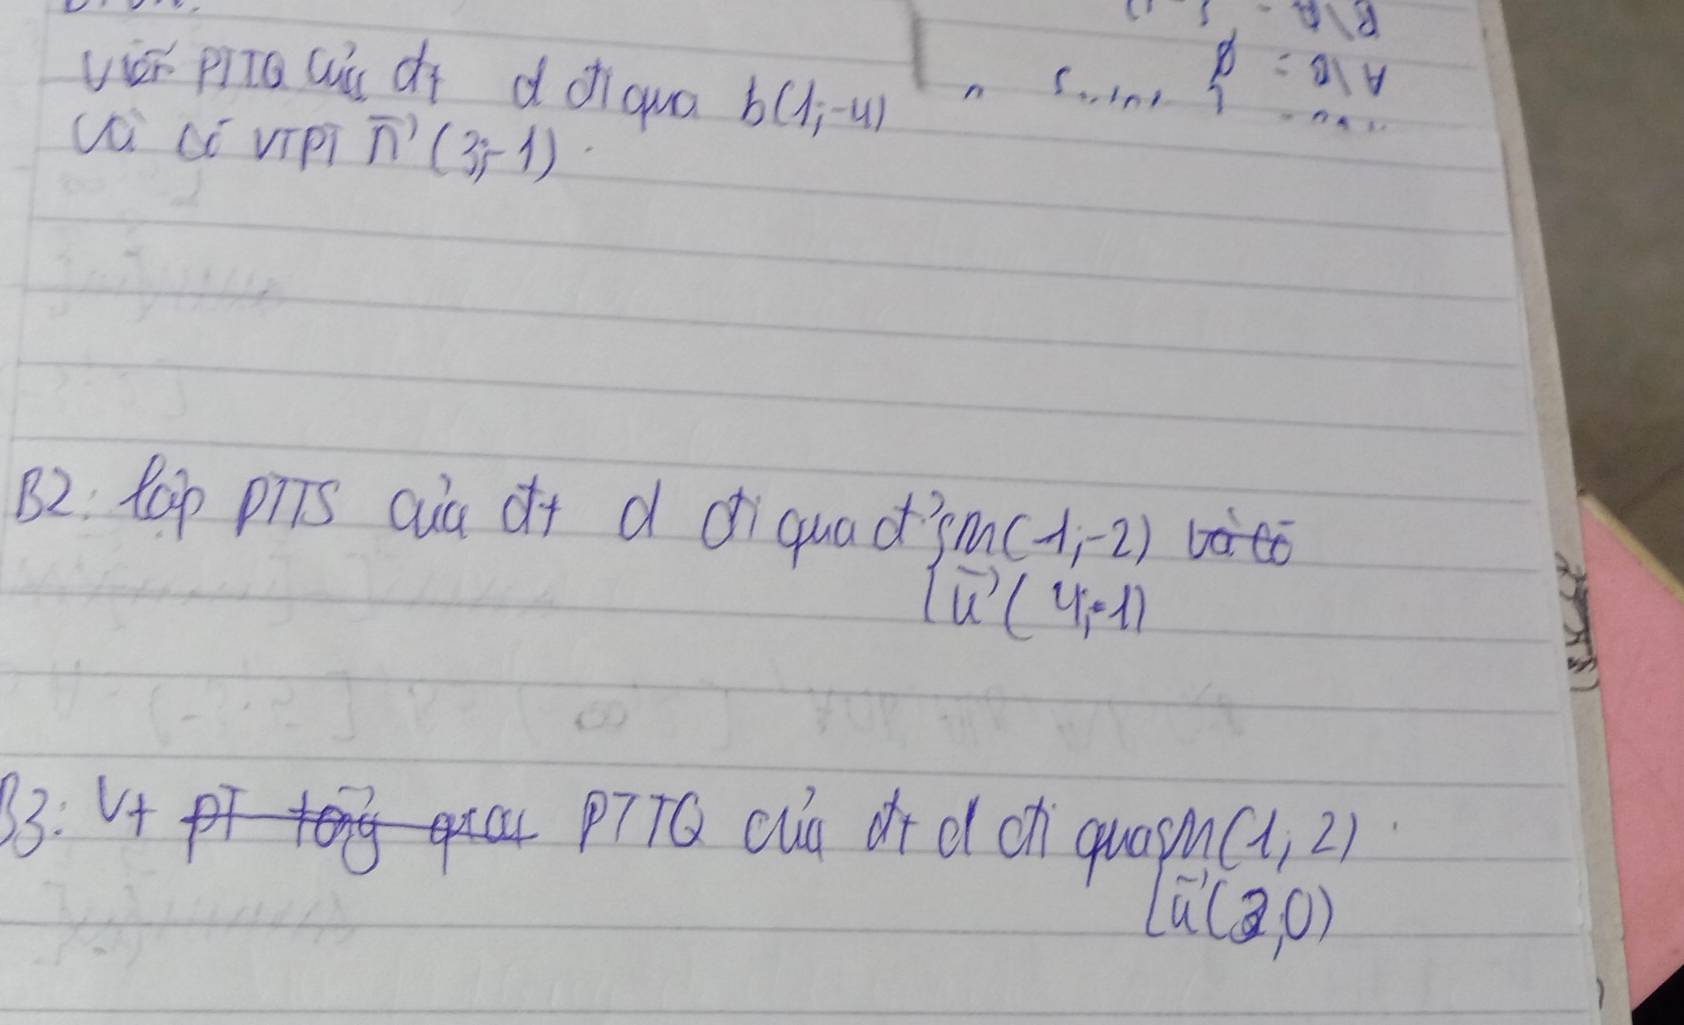 B\A =
A\B = ∅
viết PTTQ của đt d đi qua b(1;-4)
và có VTPT n (3;-1).
B2: lập PTTS của đt d đi qua đ' m(1;-2) và có
u (4;-1)
B3: Vt PT tổng quat PTTQ của đt d đi qua m(1,2).
u (2,0)